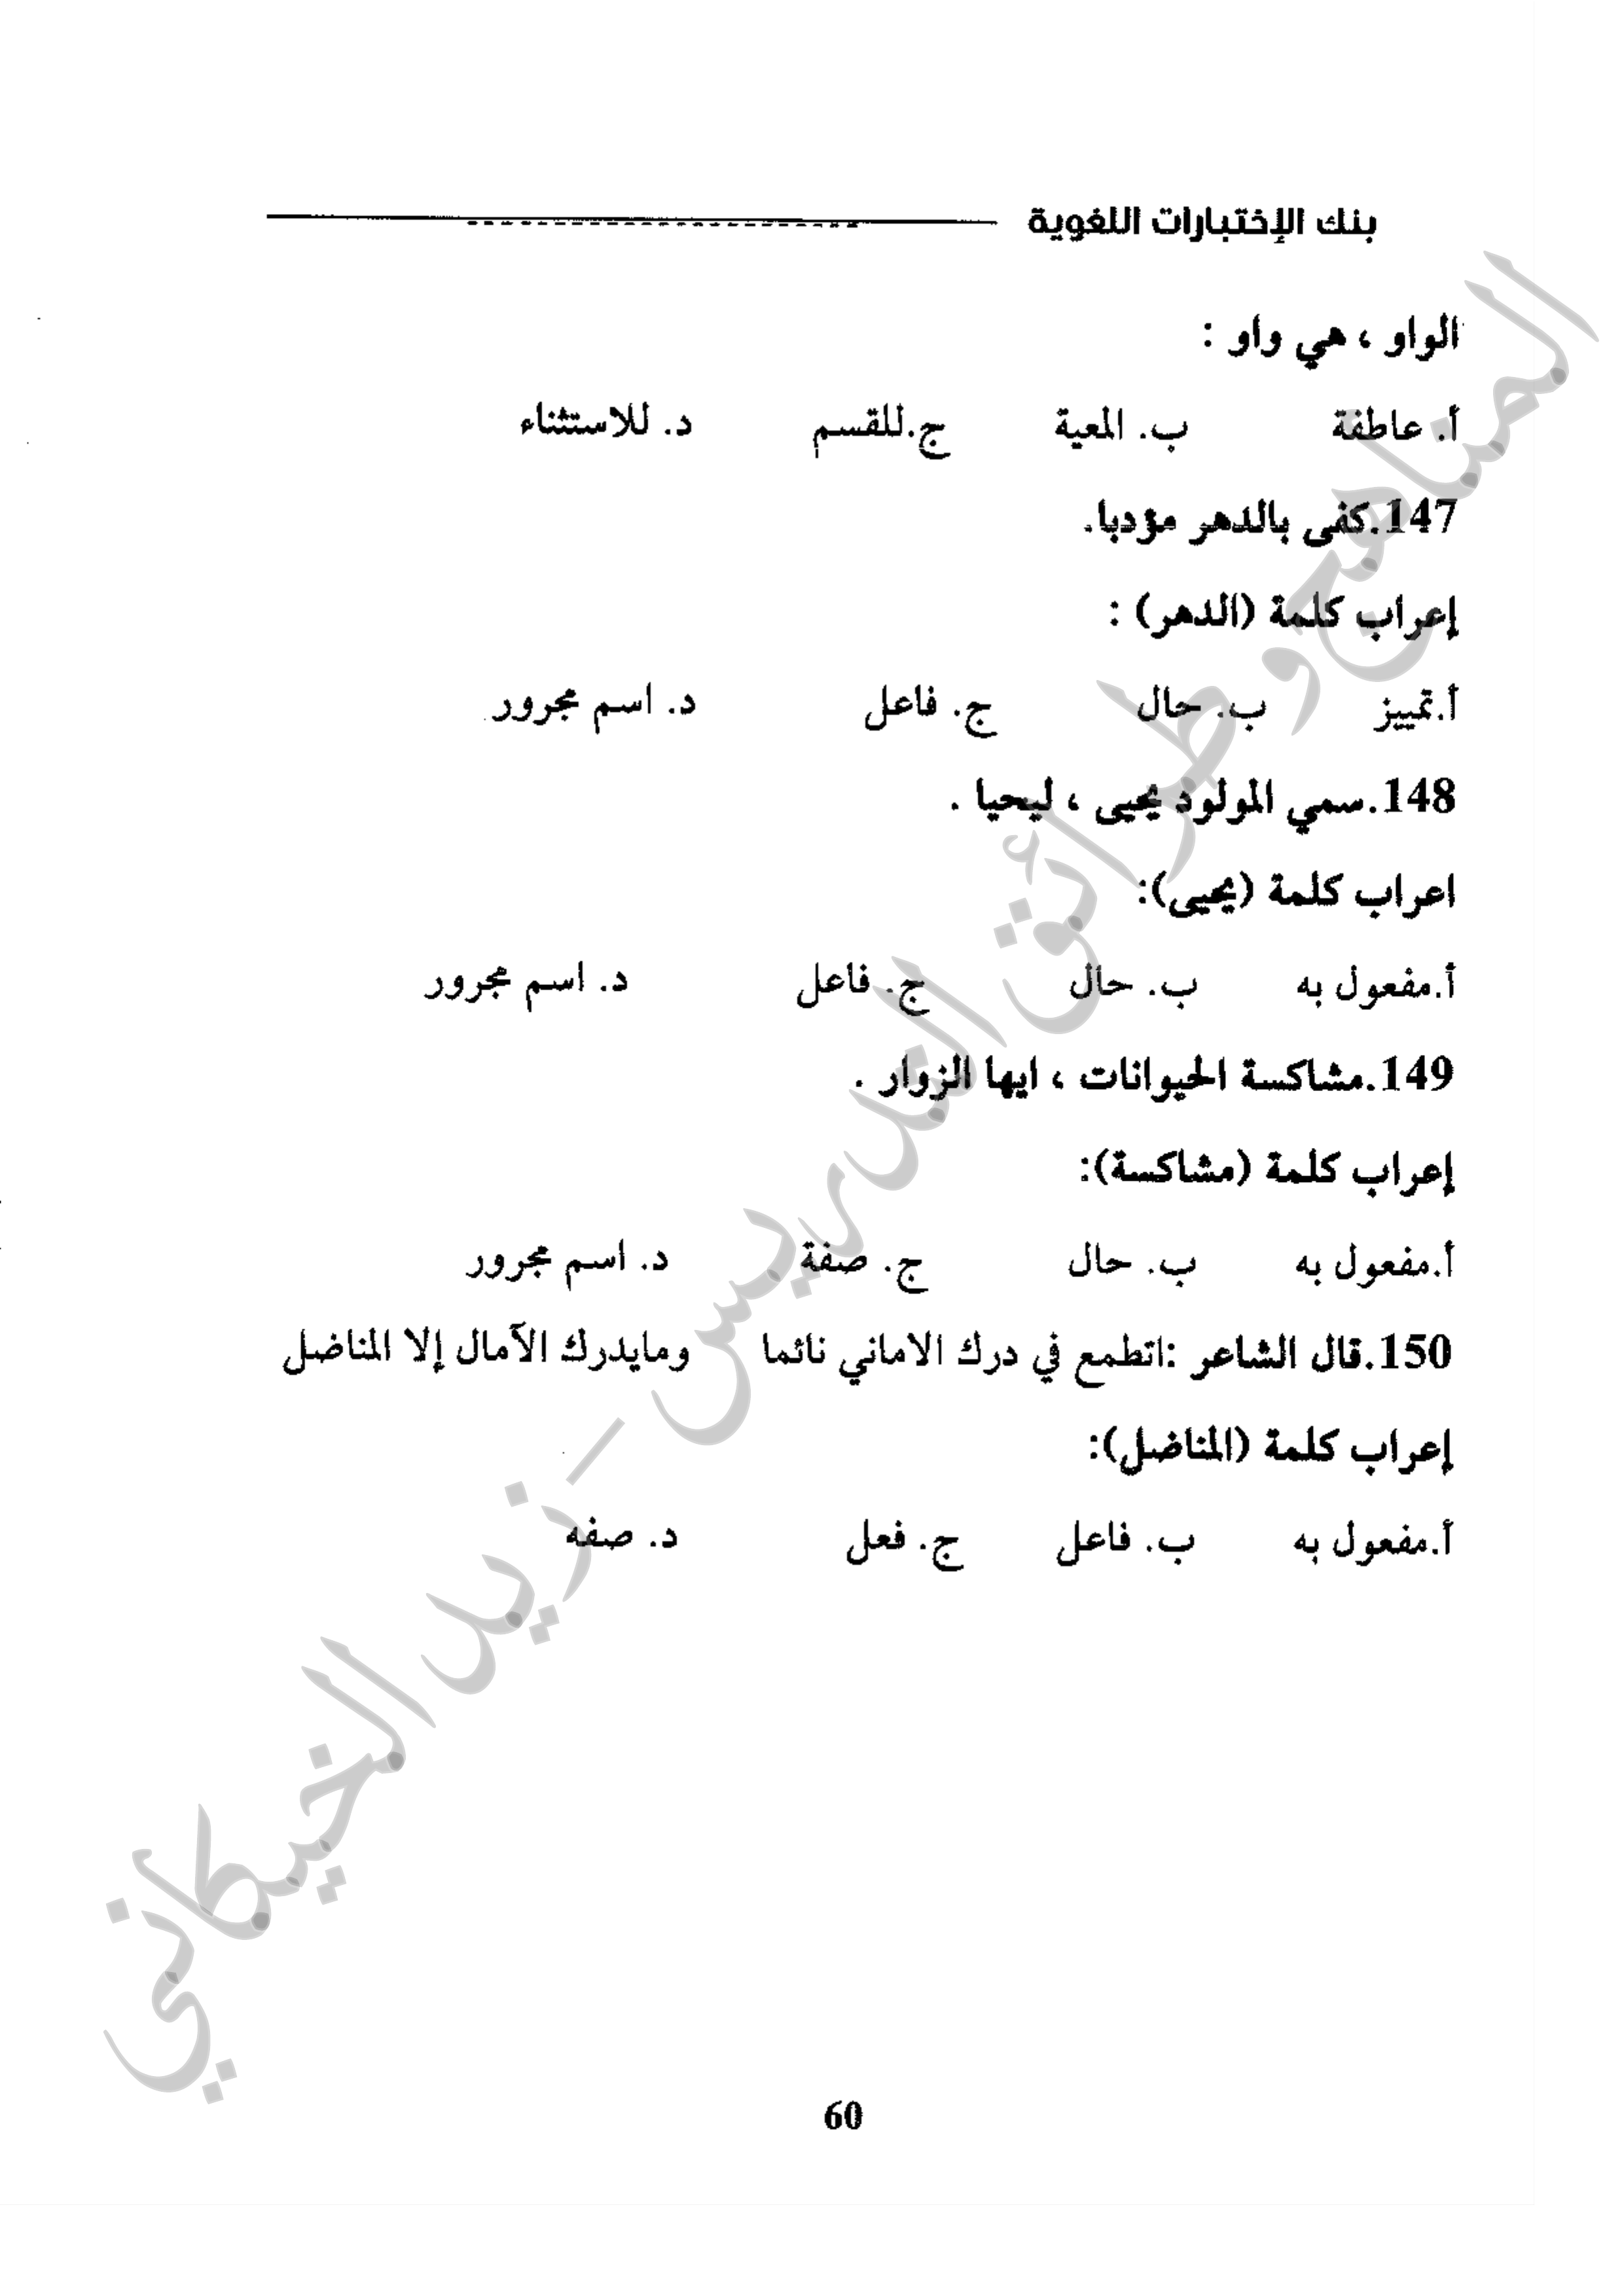 بنك الإختبارات اللغوية
الواو ، هي واو :
أ. عاطفة ب. المعية ج.للقسم د. للاستثناء
147.كفى بالدهر مؤدبا.
إعراب كلمة (الدهر) :
أ.تمييز ب. حال ج. فاعل د. اسم مجرور
148.سمي المولود يحيى ، ليحيا .
اعراب كلمة (يحيى):
أ.مفعول به ب. حال ج. فاعل د. اسم مجرور
149.مشاكسة الحيوانات ، ايها الزوار .
إعراب كلمة (مشاكسة):
أ.مفعول به ب. حال ج. صفة د. اسم مجرور
150.قال الشاعر :اتطمع في درك الاماني نائما ومايدرك الآمال إلا المناضل
إعراب كلمة (المناضل):
أ.مفعول به ب. فاعل ج. فعل د. صفه
60
المناهج وطرائق التدريس - زيد الخيكاني